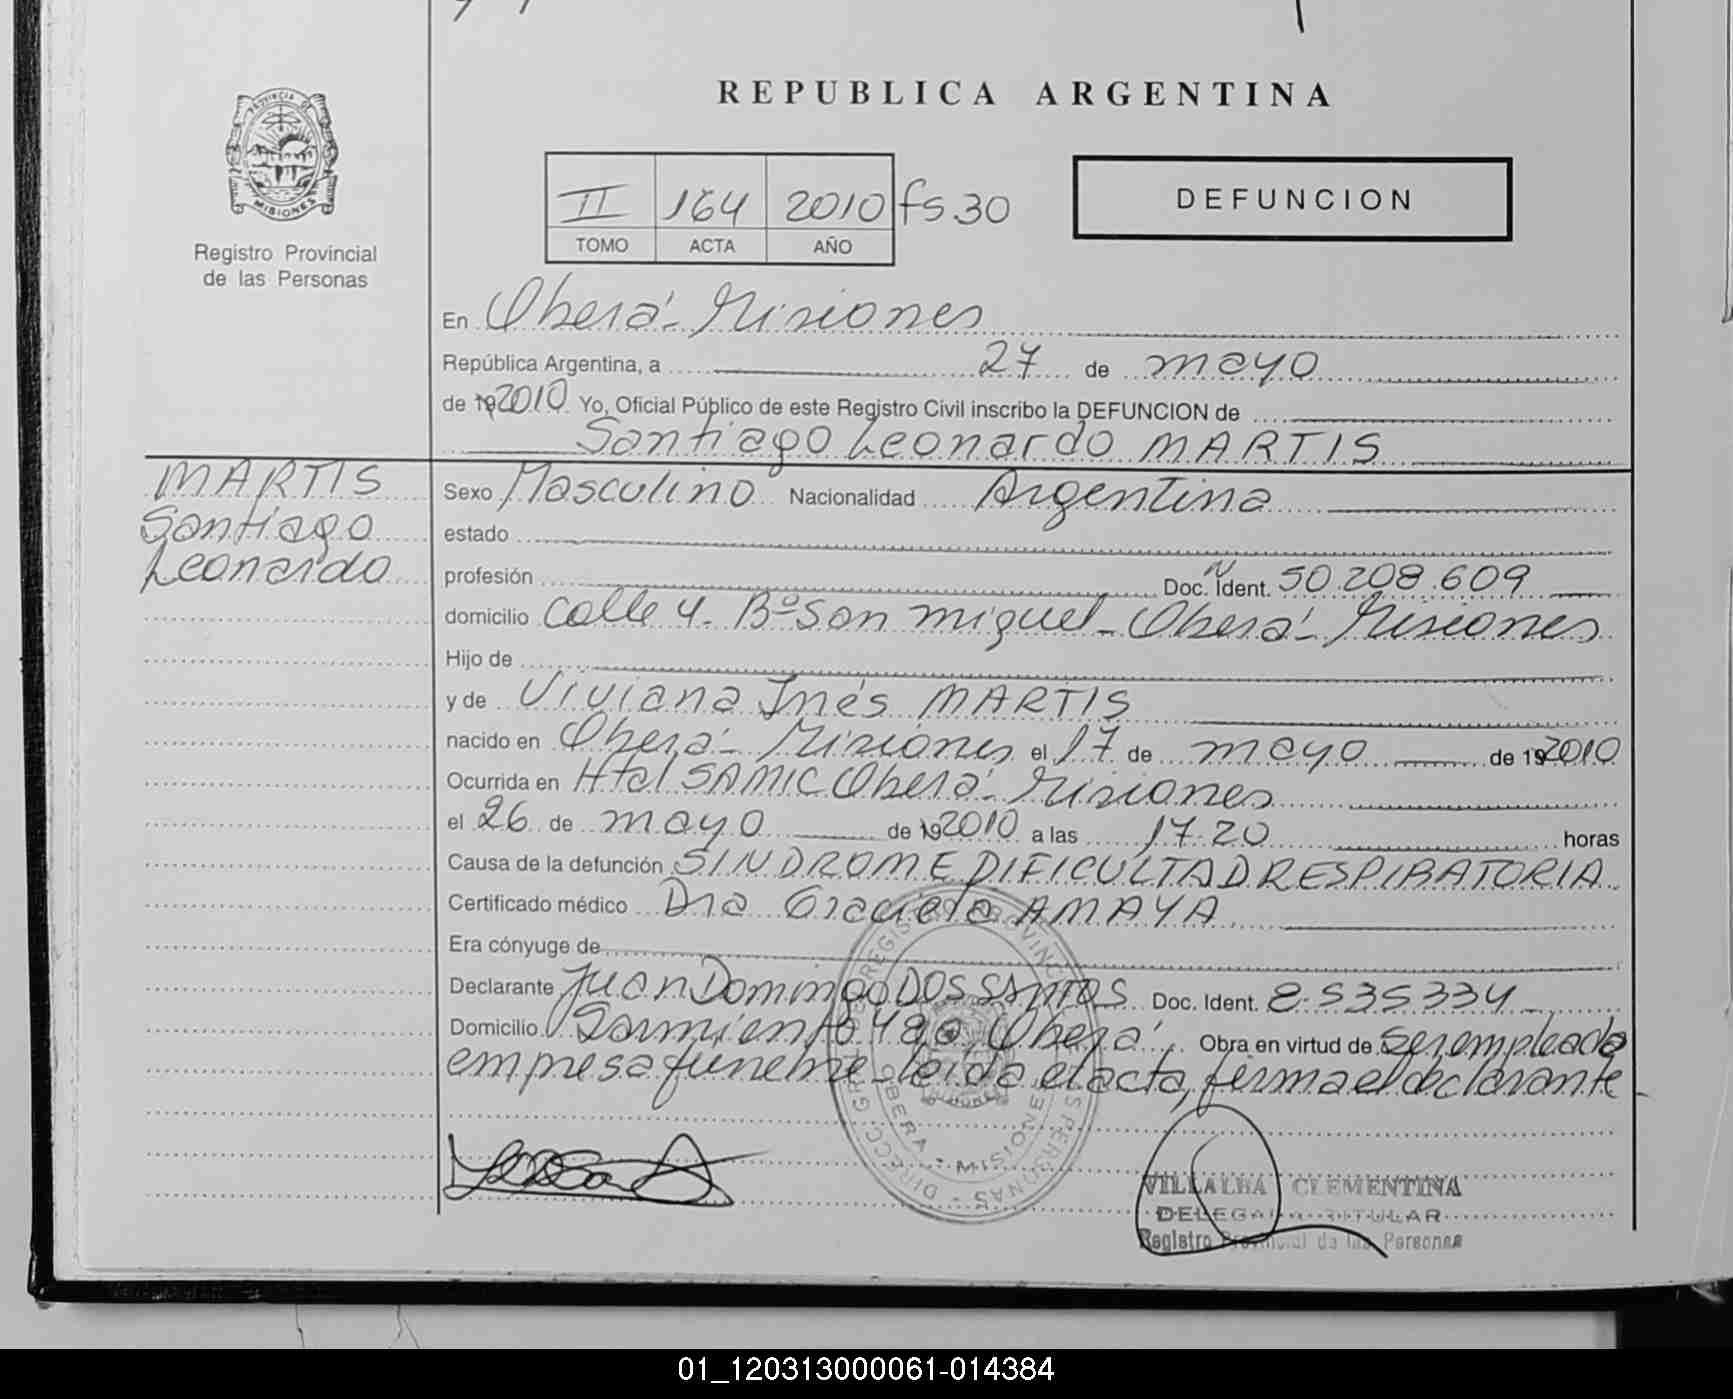 REPUBLICA ARGENTINA
PROVINCIA DE
MISIONES
Registro Provincial
de las Personas
II 164 2010 fs 30
TOMO ACTA AÑO
DEFUNCION
En Oberá - Misiones
República Argentina, a 27 de mayo
de 19 2010 Yo, Oficial Público de este Registro Civil inscribo la DEFUNCION de
Santiago Leonardo MARTIS
MARTIS
Santiago
Leonardo
Sexo Masculino Nacionalidad Argentina
estado
profesión Doc. Ident. 50.208.609
domicilio Calle 4 - Bº San Miguel - Oberá - Misiones
Hijo de
y de Viviana Inés MARTIS
nacido en Oberá - Misiones el 17 de mayo de 19 2010
Ocurrida en Htal SAMIC Oberá - Misiones
el 26 de mayo de 19 2010 a las 17.20 horas
Causa de la defunción SINDROME DIFICULTAD RESPIRATORIA
Certificado médico Dra Graciela AMAYA
Era cónyuge de
Declarante Juan Domingo DOS SANTOS Doc. Ident. 8.535.334
Domicilio Sarmiento 480 Oberá Obra en virtud de ser empleado
empresa fúnebre - leída el acta, firma el declarante
OBERA - MISIONES
VILLALBA CLEMENTINA
DELEGADA TITULAR
Registro Provincial de las Personas
01_120313000061-014384